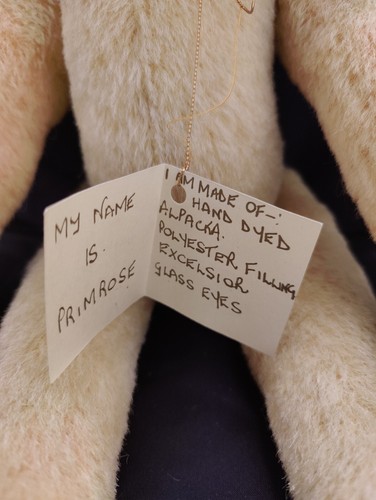 MY NAME
IS.
PRIMROSE
I AM MADE OF-:
HAND DYED
ALPACKA.
POLYESTER FILLING
EXCELSIOR
GLASS EYES